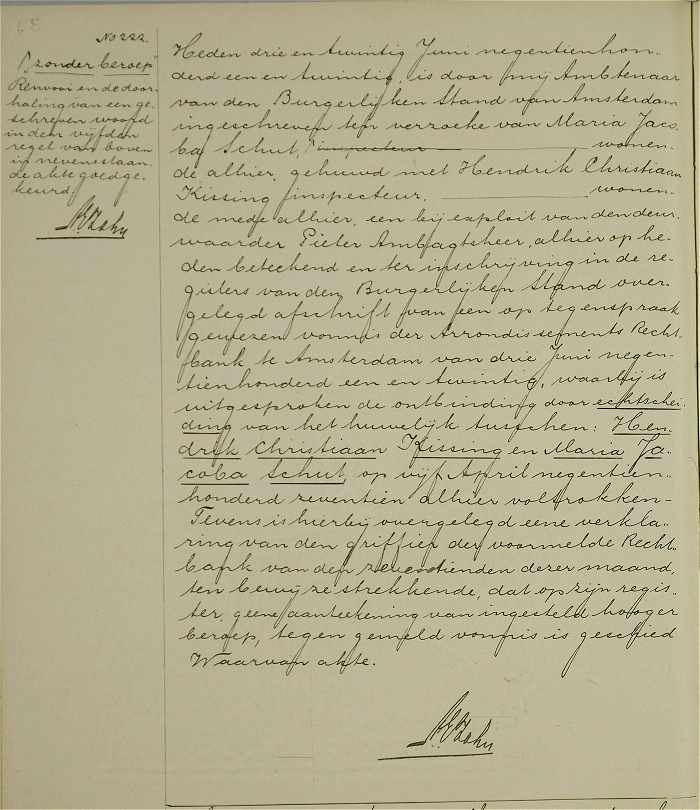 No 222.
⌈"zonder beroep"
Renvooi en de door-
haling van een ge-
schreven woord
in den vijfden
regel van boven
in nevenstaan-
de akte goedge-
keurd
Heden drie en twintig Juni negentienhon-
derd een en twintig, is door mij Ambtenaar
van den Burgerlijken Stand van Amsterdam
ingeschreven ten verzoeke van Maria Jaco-
ba Schut, ⌈inspecteur wonen-
de alhier, gehuwd met Hendrik Christiaan
Kissing, inspecteur, wonen-
de mede alhier, een bij exploit van den deur-
waarder Pieter Ambagtsheer, alhier op he-
den beteekend en ter inschrijving in de re-
gisters van den Burgerlijken Stand over-
gelegd afschrift van een op tegenspraak
gewezen vonnis der Arrondissements Recht-
bank te Amsterdam van drie Juni negen-
tienhonderd een en twintig, waarbij is
uitgesproken de ontbinding door echtschei-
ding van het huwelijk tusschen: Hen-
drik Christiaan Kissing en Maria Ja-
coba Schut, op vijf April negentien-
honderd zeventien alhier voltrokken-
Tevens is hierbij overgelegd eene verkla-
ring van den griffier der voormelde Recht-
bank van den zeventienden dezer maand,
ten bewijze strekkende, dat op zijn regis-
ter, geene aanteekening van ingesteld hooger
beroep, tegen gemeld vonnis is geschied
Waarvan akte.